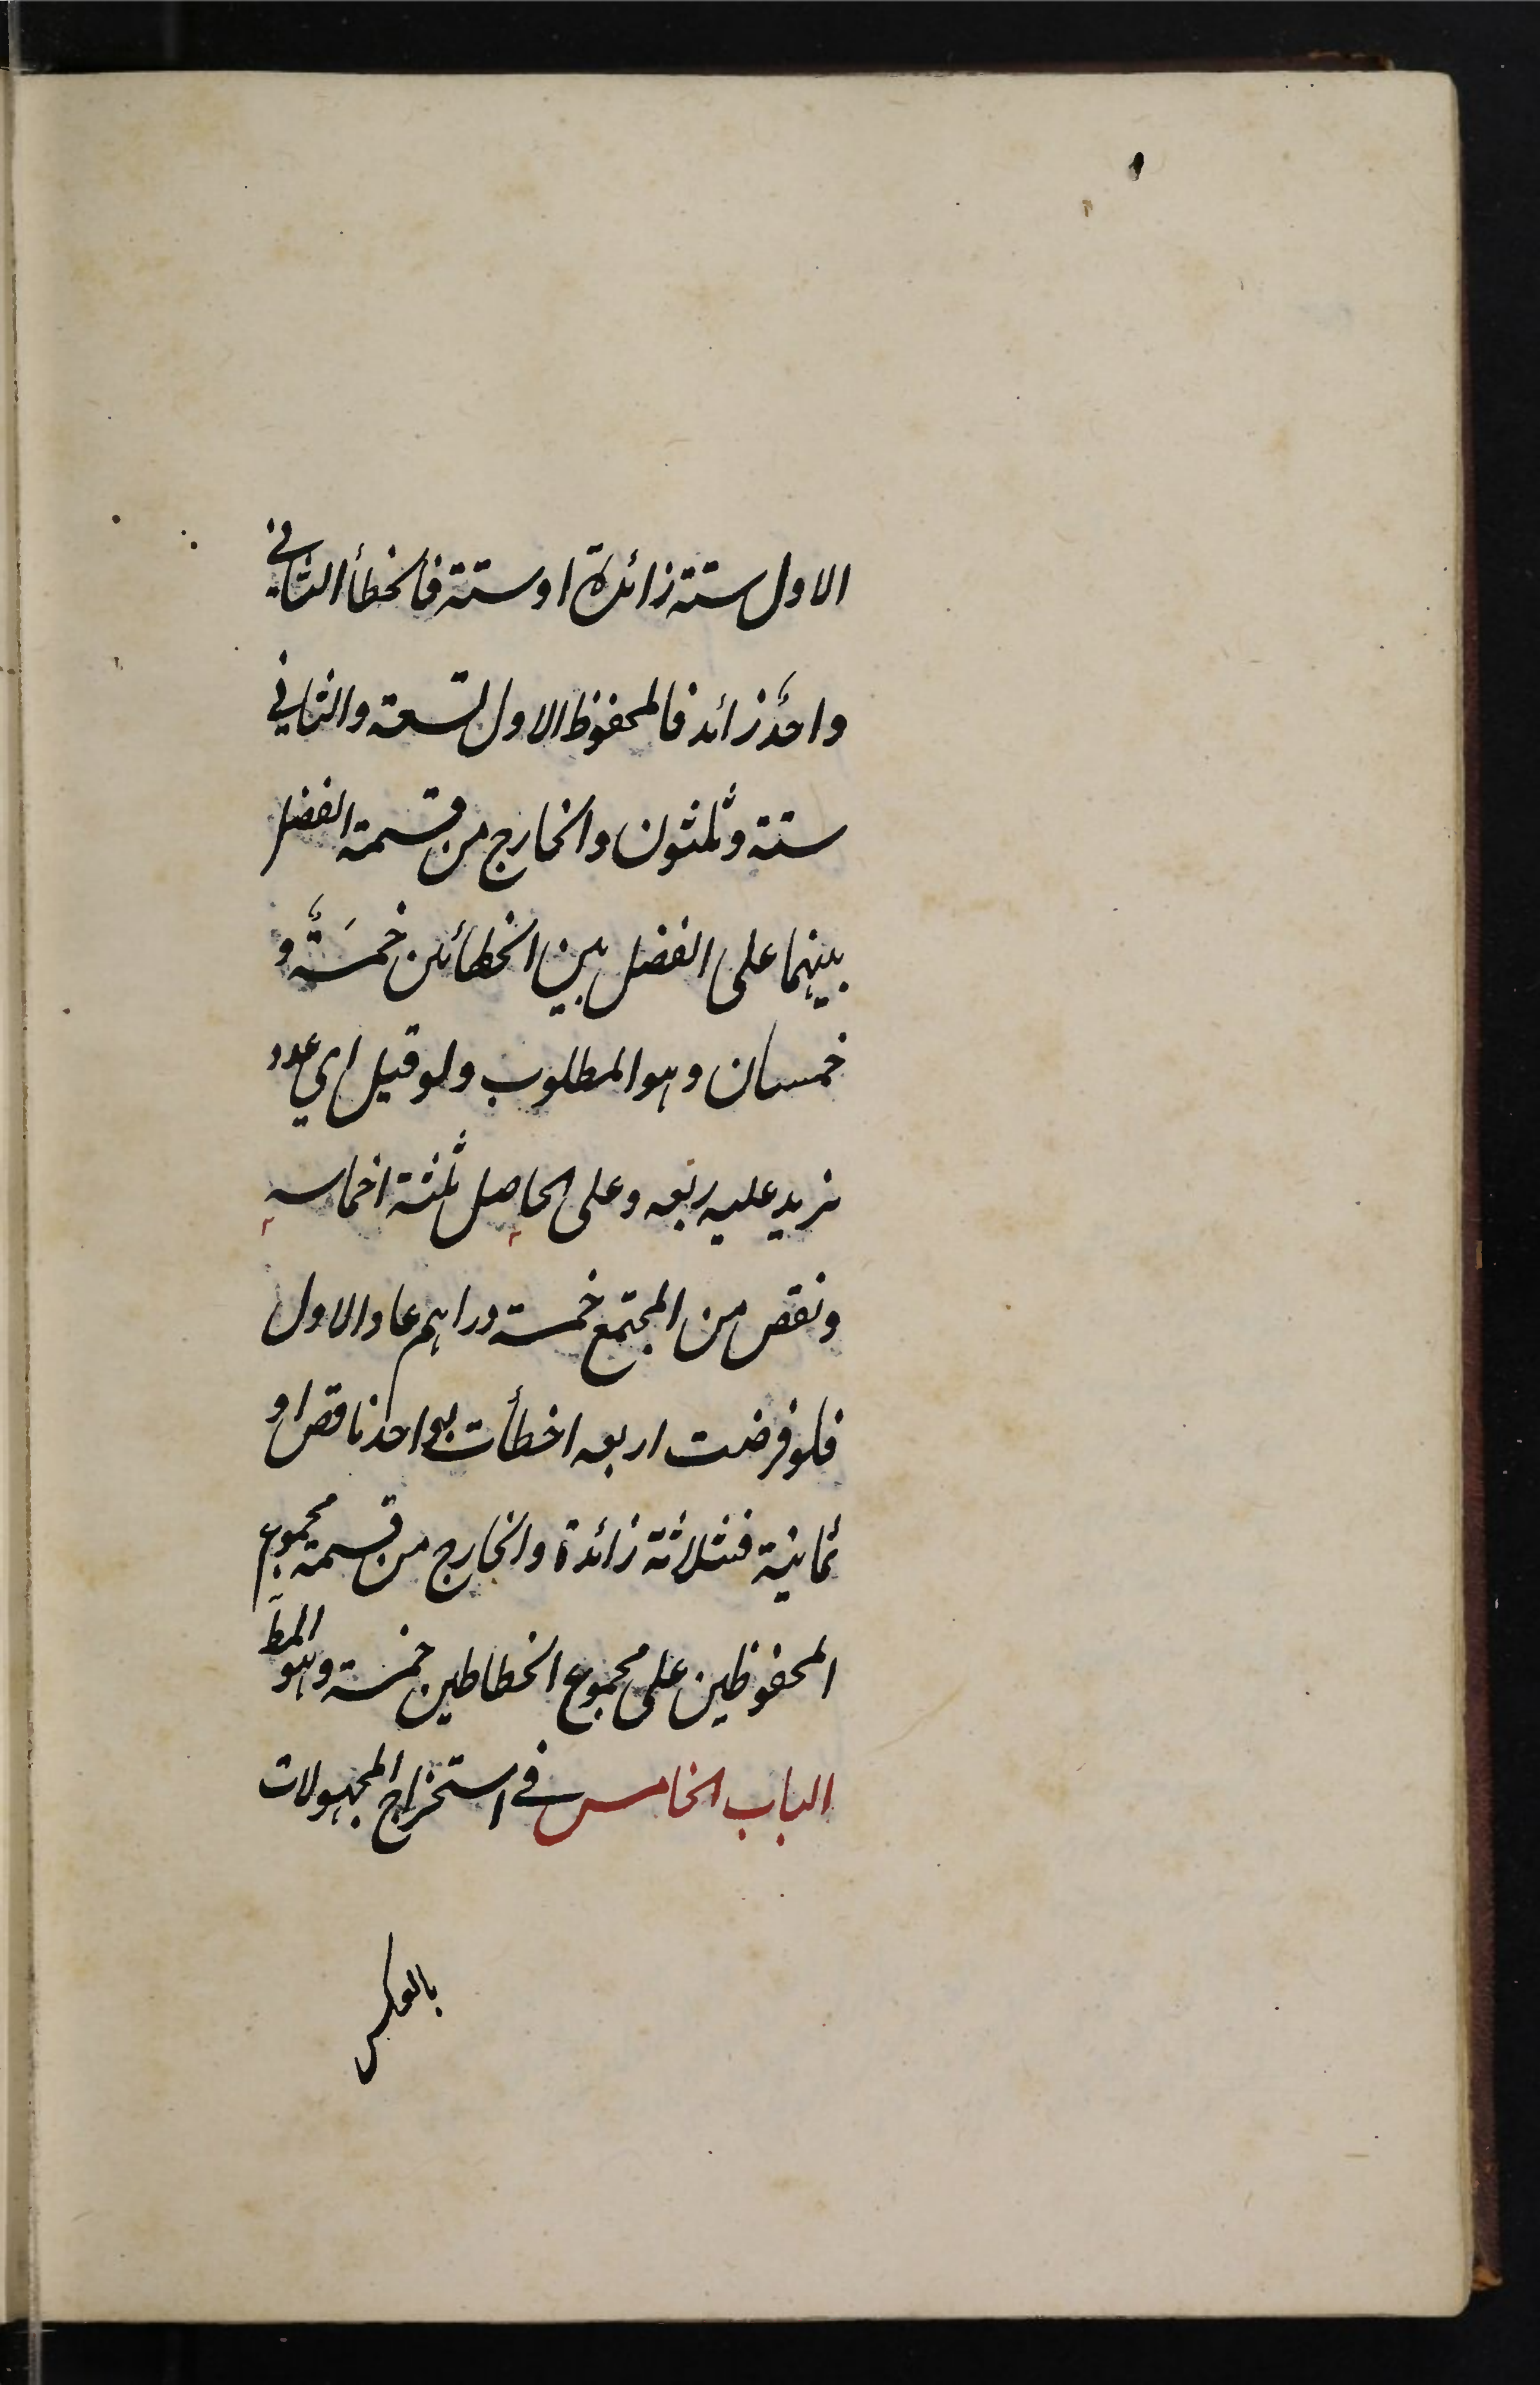 الاول ستة زائدة او ستة فالخطأ الثاني
واحدٌ زائد فالمحفوظ الاول تسعة والثاني
ستة وثلثون والخارج من قسمة الفضل
بينهما على الفضل بين الخطائين خمسَةٌ و
خمسان وهو المطلوب ولو قيل اي عدد
نزيد عليه ربعه وعلى الحاصل ثلثة اخماسه
ونقص من المجتمع خمسة دراهم عاد الاول
فلو فرضت اربعه اخطأت بواحد ناقص او
ثمانية فثلاثة زائدة والخارج من قسمة مجموع
المحفوظين على مجموع الخطاطين خمسة وهو المط
الباب الخامس في استخراج المجهولات
بالعكس